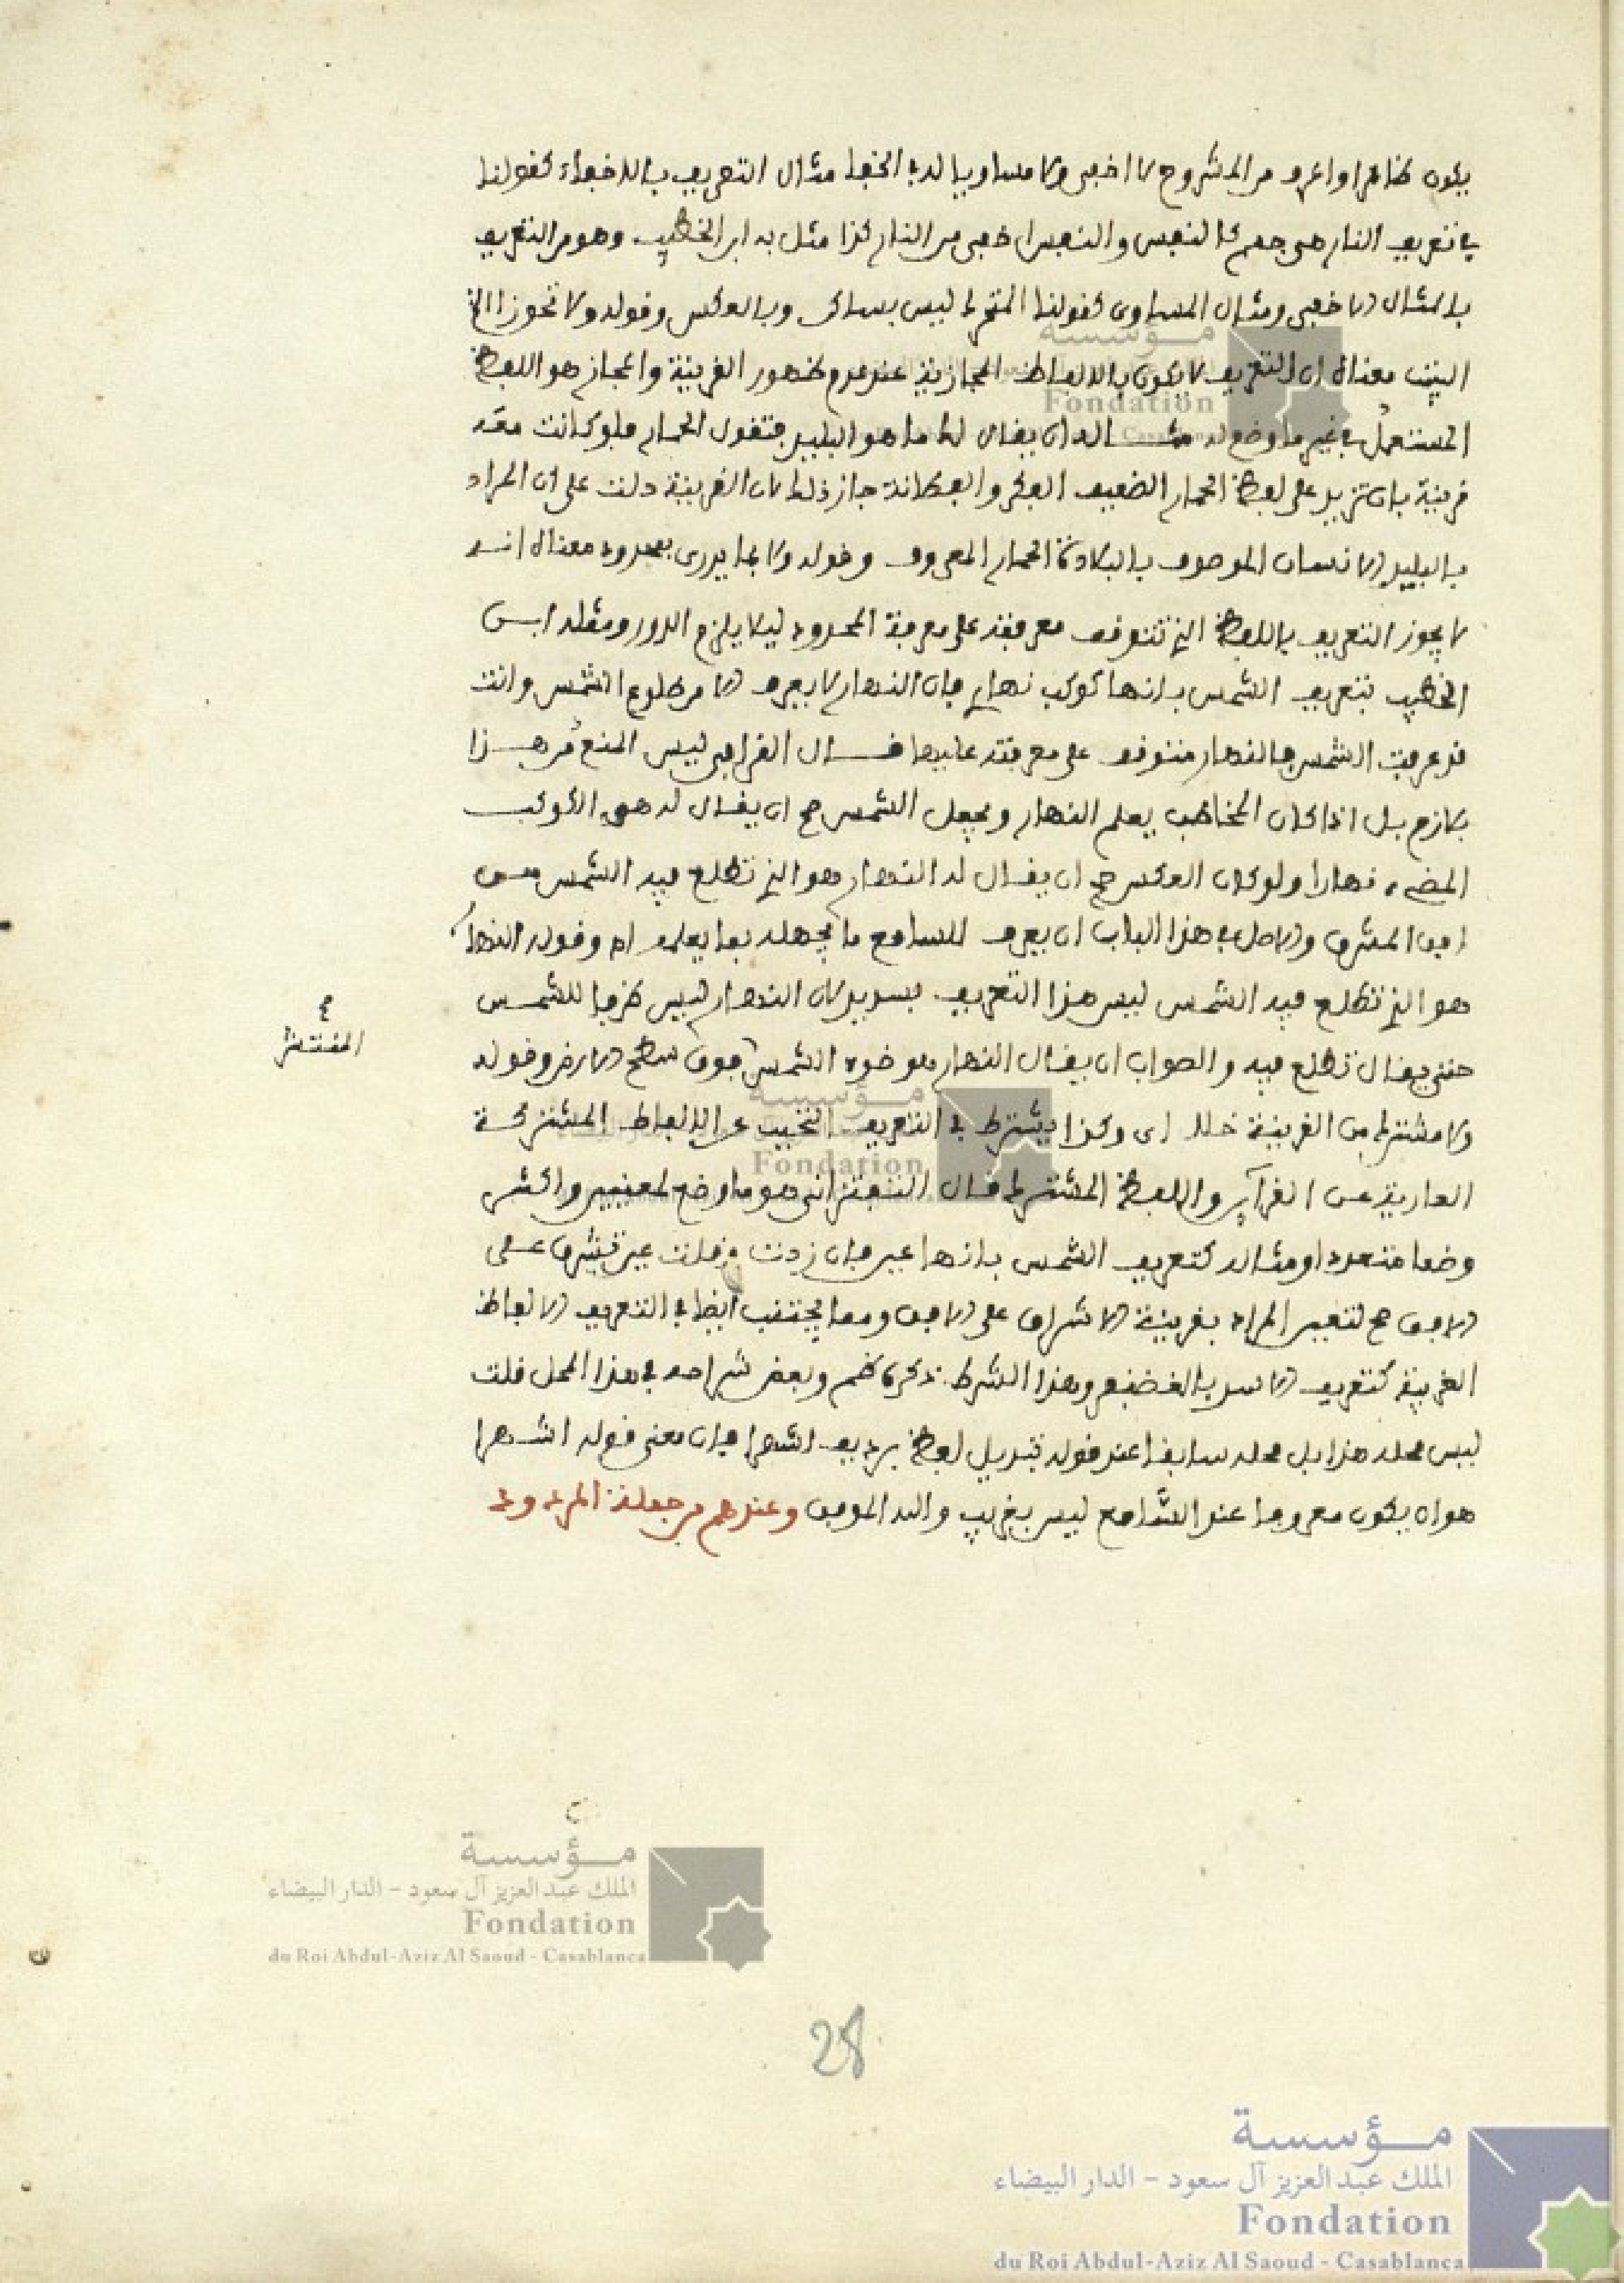 يكون ظاهرا واعرف من المشروح لا اخفى ولا مساويا له في الخفا مثال التعريف بالاخفاء كقولنا
في تعريف النار هي جسم كالنفس والنفس اخفى من النار كذا مثل به ابن الخطيب وهو من التعريف
بالمثال الاخفى ومثال المساوى كقولنا المتحرك ليس بساكن وبالعكس وقوله ولا تجوزا الخ
البيت معناه ان التعريف لا يكون بالالفاظ المجازية عند عدم ظهور القرينة والمجاز هو اللفظ
المستعمل في غير ما وضع له مثـاله ان يقال لك ما هو البليد فتقول الحمار فلو كانت معه
قرينة بان تزيد على لفظ الحمار الضعيف الفكر والفطانة جاز ذلك لان القرينة دلت على ان المراد
بالبليد الانسان الموصوف بالبلادة لا الحمار المعروف وقوله ولا بما يدرى بمحدود معناه انه
لا يجوز التعريف باللفظ الذي تتوقف معرفته على معرفة المحدود ليلا يلزم الدور ومثله ابن
الخطيب بتعريف الشمس بانها كوكب نهاري فان النهار لا يعرف الا من طلوع الشمس وانت
قد عرفت الشمس بالنهار فتتوقف على معرفته عليها قـال القرافي ليس المنع من هـذا
بلازم بل اذا كان المخاطب يعلم النهار ويجهل الشمس صح ان يقال له هي الكوكب
المضيء نهارا ولو كان العكس صح ان يقال له النهار هو الذي تطلع فيه الشمس من
افق المشرق والاصل في هذا الباب ان يعرف للسامع ما يجهله بما يعلمه اه وقوله النهار
هو الذي تطلع فيه الشمس ليس هذا التعريف بسديد لان النهار ليس ظرفا للشمس
حتى يقال تطلع فيه والصواب ان يقال النهار هو ضوء الشمس فوق سطح الارض وقوله
ولا مشترك من القرينة خلا اى وكذا يشترط في التعريف التجنيب عن الالفاظ المشتركة
العارية عن القرآين واللفظ المشترك قال التفتزانى هو ما وضع لمعنيين واكثر
وضعا متعددا ومثاله كتعريف الشمس بانها عين فان زدت وقلت عين تشرق على
الافق صح لتعيين المراد بقرينة الاشراق على الافق ومما يجتنب ايضا في التعريف الالفاظ
الغريبة كتعريف الاسد بالغضنفر وهذا الشرط ذكره الناظم وبعض شراحه في هذا المحل قلت
ليس محله هذا بل محله سابقا عند قوله تبديل لفظ برديف اشهرا فان معنى قوله اشـهرا
هو ان يكون معروفا عند السامع ليس بغريب والله الموفق وعندهم من جملة المردود
المنتشر
مؤسسة
الملك عبد العزيز آل سعود - الدار البيضاء
Fondation
du Roi Abdul-Aziz Al Saoud - Casablanca
28
مؤسسة
الملك عبد العزيز آل سعود - الدار البيضاء
Fondation
du Roi Abdul-Aziz Al Saoud - Casablanca